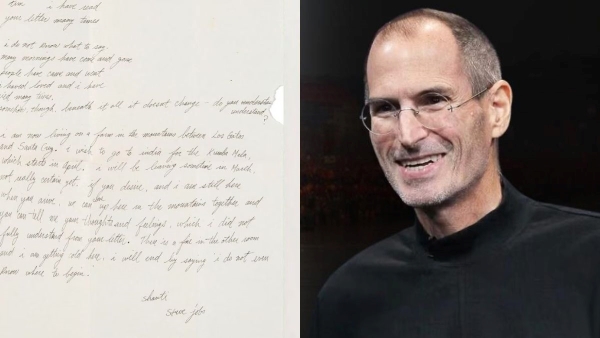 tim i have read
your letter many times
i do not know what to say.
many mornings have come and gone
people have came and went
i have loved and i have
cried many times.
somehow though, beneath it all it doesnt change - do you understand
understand?
i am now living on a farm in the mountains between Los Gatos
and Santa Cruz. i wish to go to india for the Kumba Mela,
which starts in April. i will be leaving sometime in March,
not really certain yet. if you desire, and i am still here
when you come, we can up here in the mountains together and
you can tell me your thoughts and feelings, which i did not
fully understand from your letter. There is a fire in the other room
and i am getting cold here. i will end by saying i do not even
know where to begin.
shanti
steve jobs